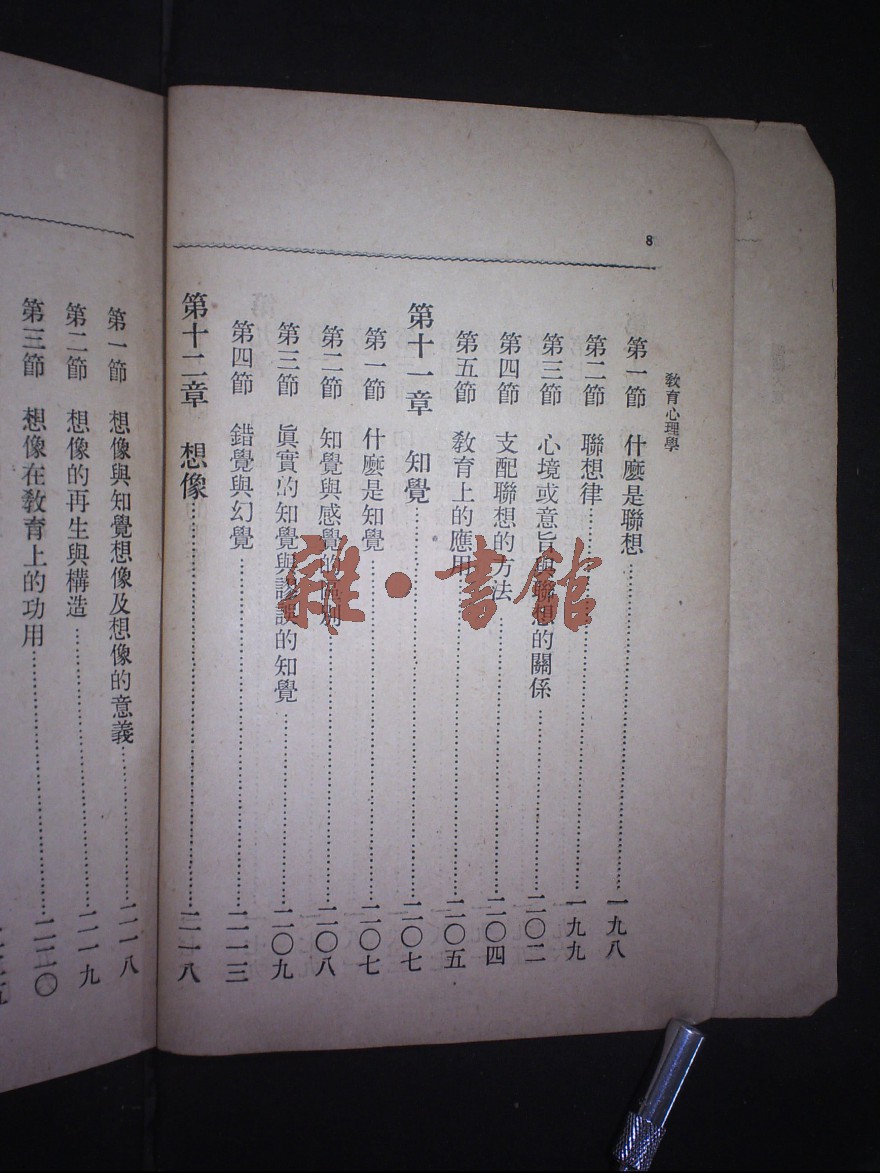 8
教育心理學
第一節 什麼是聯想……一九八
第二節 聯想律……一九九
第三節 心境或意旨與聯想的關係……二〇二
第四節 支配聯想的方法……二〇四
第五節 教育上的應用……二〇五
第十一章 知覺……二〇七
第一節 什麼是知覺……二〇七
第二節 知覺與感覺的區別……二〇八
第三節 眞實的知覺與謬誤的知覺……二〇九
第四節 錯覺與幻覺……二一三
第十二章 想像……二一八
第一節 想像與知覺想像及想像的意義……二一八
第二節 想像的再生與構造……二一九
第三節 想像在教育上的功用……二二〇
雜·書館